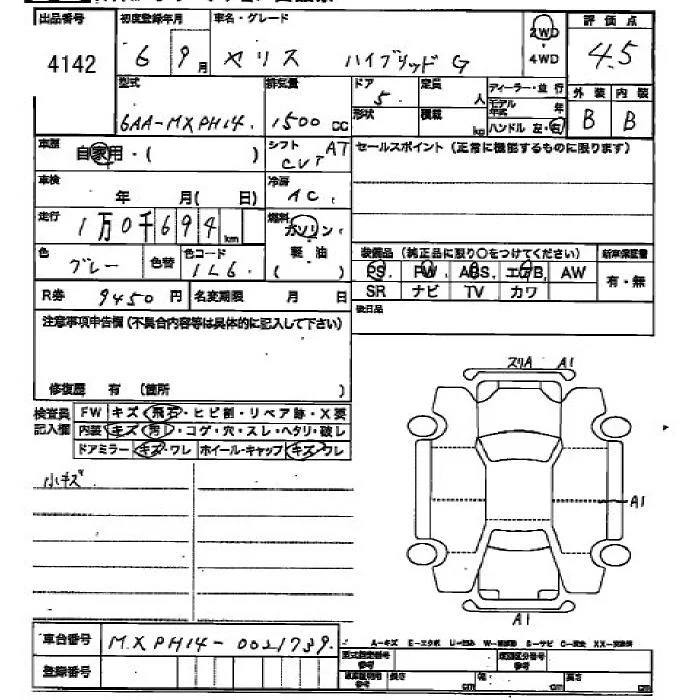 出品番号 初度登録年月 車名・グレード 2WD・4WD 評価点
4142 6 9月 ヤリス ハイブリッド G 4.5
型式 排気量 ドア 定員 ディーラー・並行 外装 内装
6AA-MXPH14. 1500 CC 5. 人 モデル年式 年 B B
形状 積載 kg ハンドル 左・右
車歴 自家用・( ) シフト AT CVT セールスポイント (正常に機能するものに限ります)
車検 年 月( 日) 冷房 AC
走行 1万0千694km 燃料 ガソリン・軽油( )
色 グレー 色替 色コード 1L6. 装備品 (純正品に限り○をつけてください) 新車保証書
PS. PW. ABS. エアB. AW 有・無
R券 9450円 名変期限 月 日 SR ナビ TV カワ
注意事項申告欄 (不具合内容等は具体的に記入して下さい) 後日品
修復歴 有 (箇所 )
検査員記入欄 FW キズ・飛石・ヒビ割・リペア跡・X要
内装 キズ・汚・コゲ・穴・スレ・ヘタリ・破レ
ドアミラー キズ・ワレ ホイール・キャップ キズ・ワレ
小キズ
スリA A1
A1
A1
車台番号 MXPH14-0021739.
A-キズ E-エクボ
登録番号 長さ cm 幅 cm 高さ cm